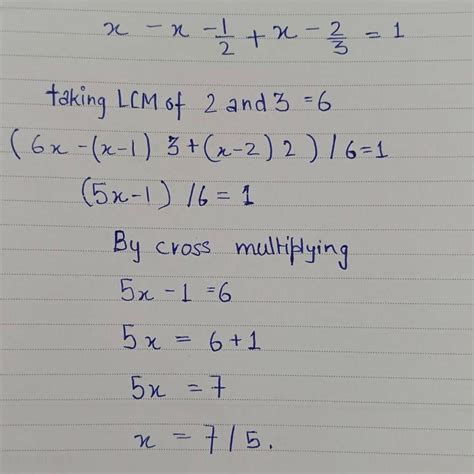 x - x - 1/2 + x - 2/3 = 1
taking LCM of 2 and 3 = 6
(6x - (x-1) 3 + (x-2) 2) / 6 = 1
(5x-1) / 6 = 1
By cross multiplying
5x - 1 = 6
5x = 6 + 1
5x = 7
x = 7 / 5.